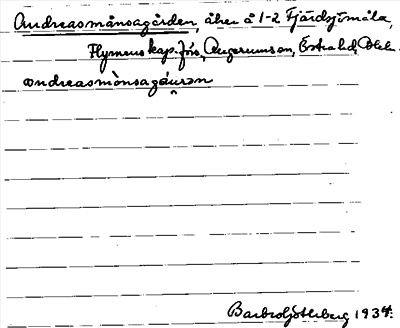 Andreasmånsagården, åker å 1-2 Fjärdsjömåla,
Flymens kap.förs., Augerums sn, Östra hd, Blek.
andreasmònsagáuṛan
Barbro Söderberg 1934.